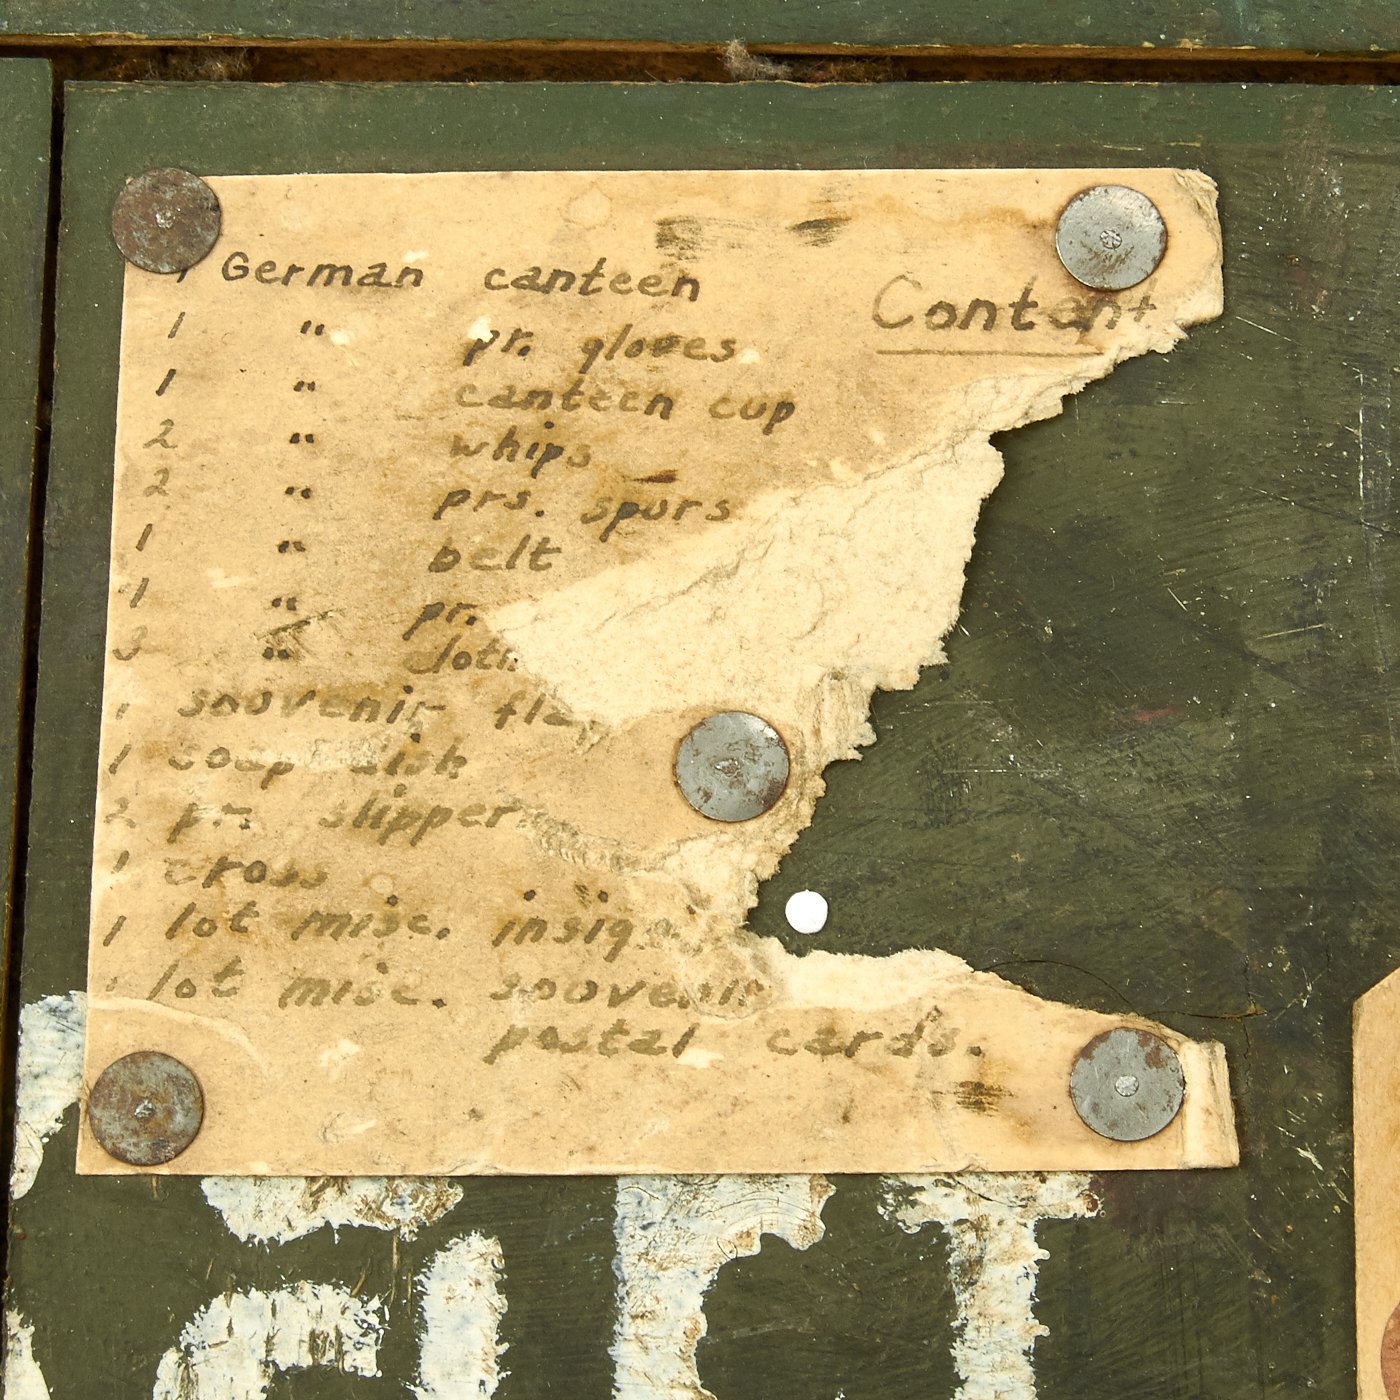 Content
1 German canteen
1 " pr. gloves
1 " canteen cup
2 " whips
2 " prs. spurs
1 " belt
1 " pr.
3 "
1 souvenir
1 soap dish
2 pr. slipper
1 cross
1 lot misc.
1 lot misc. souvenir
postal cards.